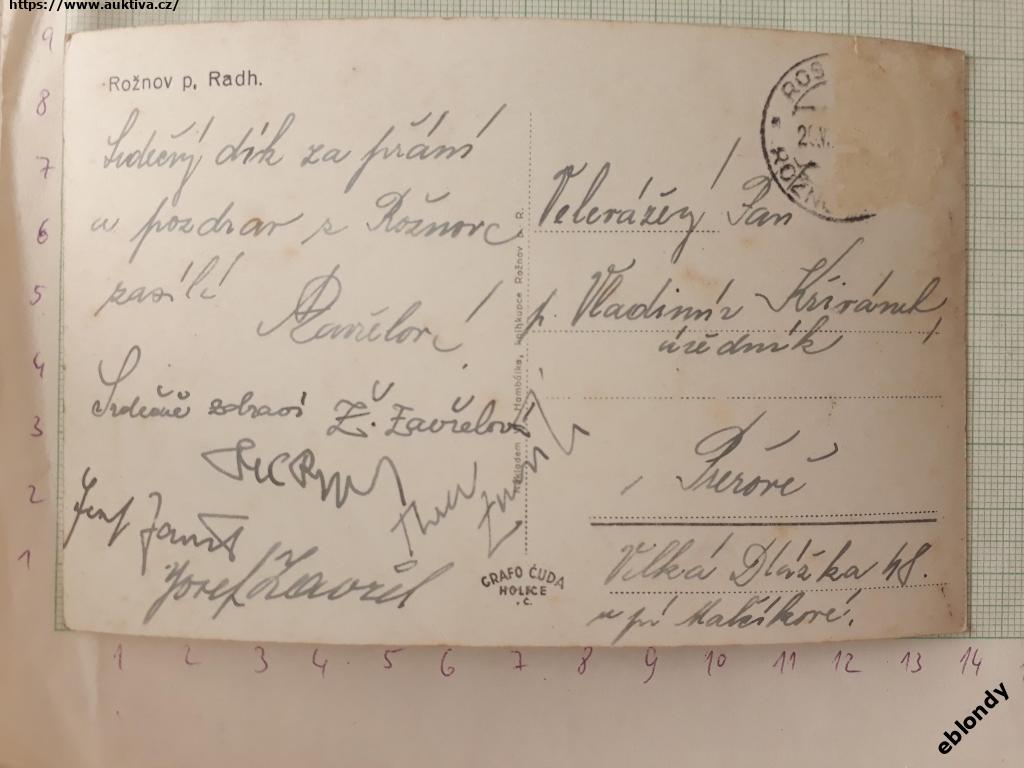 https://www.auktiva.cz/
Rožnov p. Radh.
Srdečný dík za přání
a pozdrav z Rožnova
zasílá
Zavřelová
Srdečně zdraví Ž. Zavřelová
Josef Zavřel
Velevážený Pan
p. Vladimír Křivánek,
úředník
Přerově
Velká Dlážka 48.
u pí Malčíkové.
Nákladem Hambálka, knihkupce Rožnov p. R.
GRAFO ČUDA
HOLICE
.Č.
ROŽNO
9
8
7
6
5
4
3
2
1
1 2 3 4 5 6 7 8 9 10 11 12 13 14
eblondy